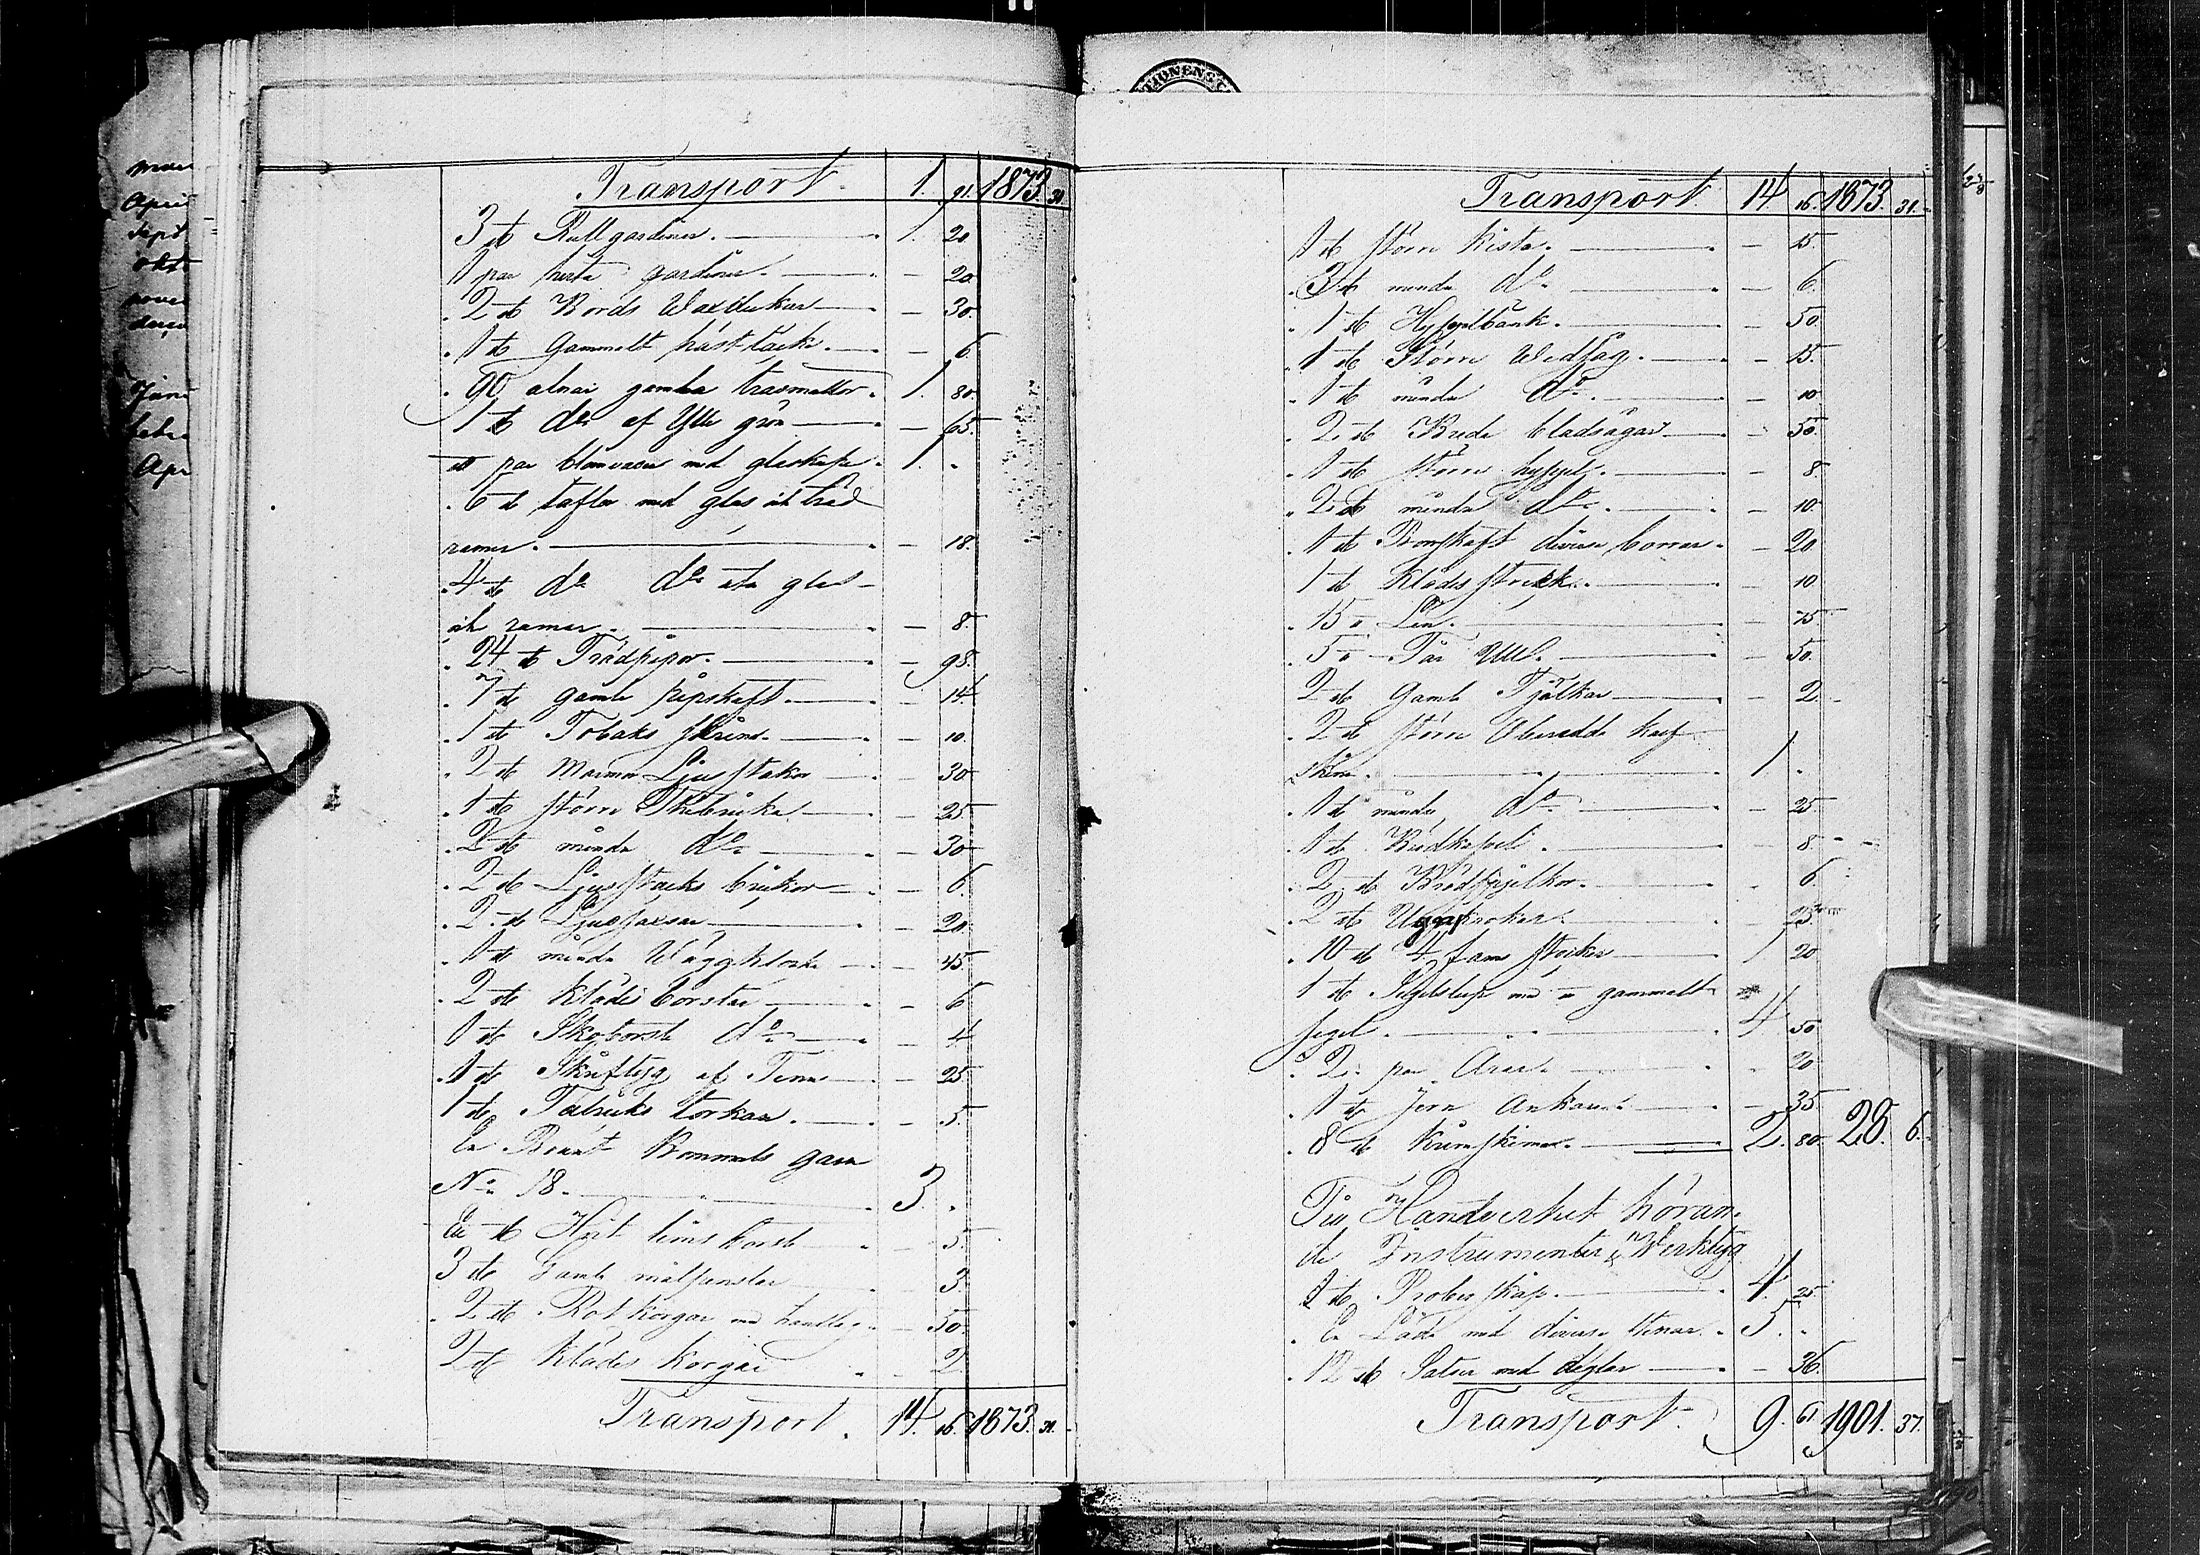 Transport. 1. 91. 1873. 31.
3 st Rullgardiner. — 1. 20.
1 par hvita gardiner. — 20.
2 st Bords Waxdukar — 30.
1 st Gammalt hästtäcke. — 6.
90 alnar gamla trasmattor. 1. 80.
1 st do af Ylle grön — 65.
par blomvaser med glaskupa. 1.
6 st taflor med glas och träd
ramar. — 18.
4 st do do utan glas
och ramar. — 8.
24 st Trädpipor. — 98.
7 st gamla pipskaft. — 14.
1 st Tobaks skrin. — 10.
2 st Marmor Ljusstakar — 30.
1 st större Thebricka — 25.
2 st mindre do — 30.
2 st Ljusstaks brickor — 6.
2 st Ljussaxar — 20.
1 st mindre Wäggklocka — 45.
2 st Klädes borstar — 6
1 st Skoborste do — 4
1 st Skriftyg af Tenn — 25.
1 st torkare. — 5.
En Bunt Bommuls garn
No 18. — 3.
En st borste — 5.
3 st Gamla målpenslar — 3.
2 st Rotkorgar med handtag. — 50.
2 st Klädes Korgar — 2.
Transport. 14. 16. 1873. 31.
mars
April
Sept
okt
nover
decem
Janu
febr
Apr
Transport 14. 16. 1873. 31.
1 st större Kista. — 15.
3 st mindre do — 6.
1 st Hyfvelbänk. — 50.
1 st Större Wedsåg. — 15.
1 st mindre do. — 10
2 st Breda bladsågar — 50.
1 st större hyfvel. — 8.
2 st mindre do. — 10
1 st Borrskaft diverse borrar. — 20
1 st Klädes streck. — 10
15 Lin. — 75
5 Får Ull. — 50.
2 st Gamla Tjälkar — 2.
2 st större Oberedda kalf
skin. — 1.
1 st mindre do — 25
1 st Brödkafvel. — 8.
2 st Brödspjelkor. — 6.
2 st Ugnskrokar — 25.
10 st 4 fams stockar 1 20
1 st gammalt
segel. — 4 50
2 par Åror. — 20
1 st Jern Ankare — 35
8 st skinn. — 2. 80. 28. 6.
Till Handverket höran-
de Instrumenter & Werktyg
1 st Proberskåp. — 4. 25.
En Låda med diverse Stenar. 5.
12 st Satser med deglar — 36.
Transport 9. 61 1901. 37.